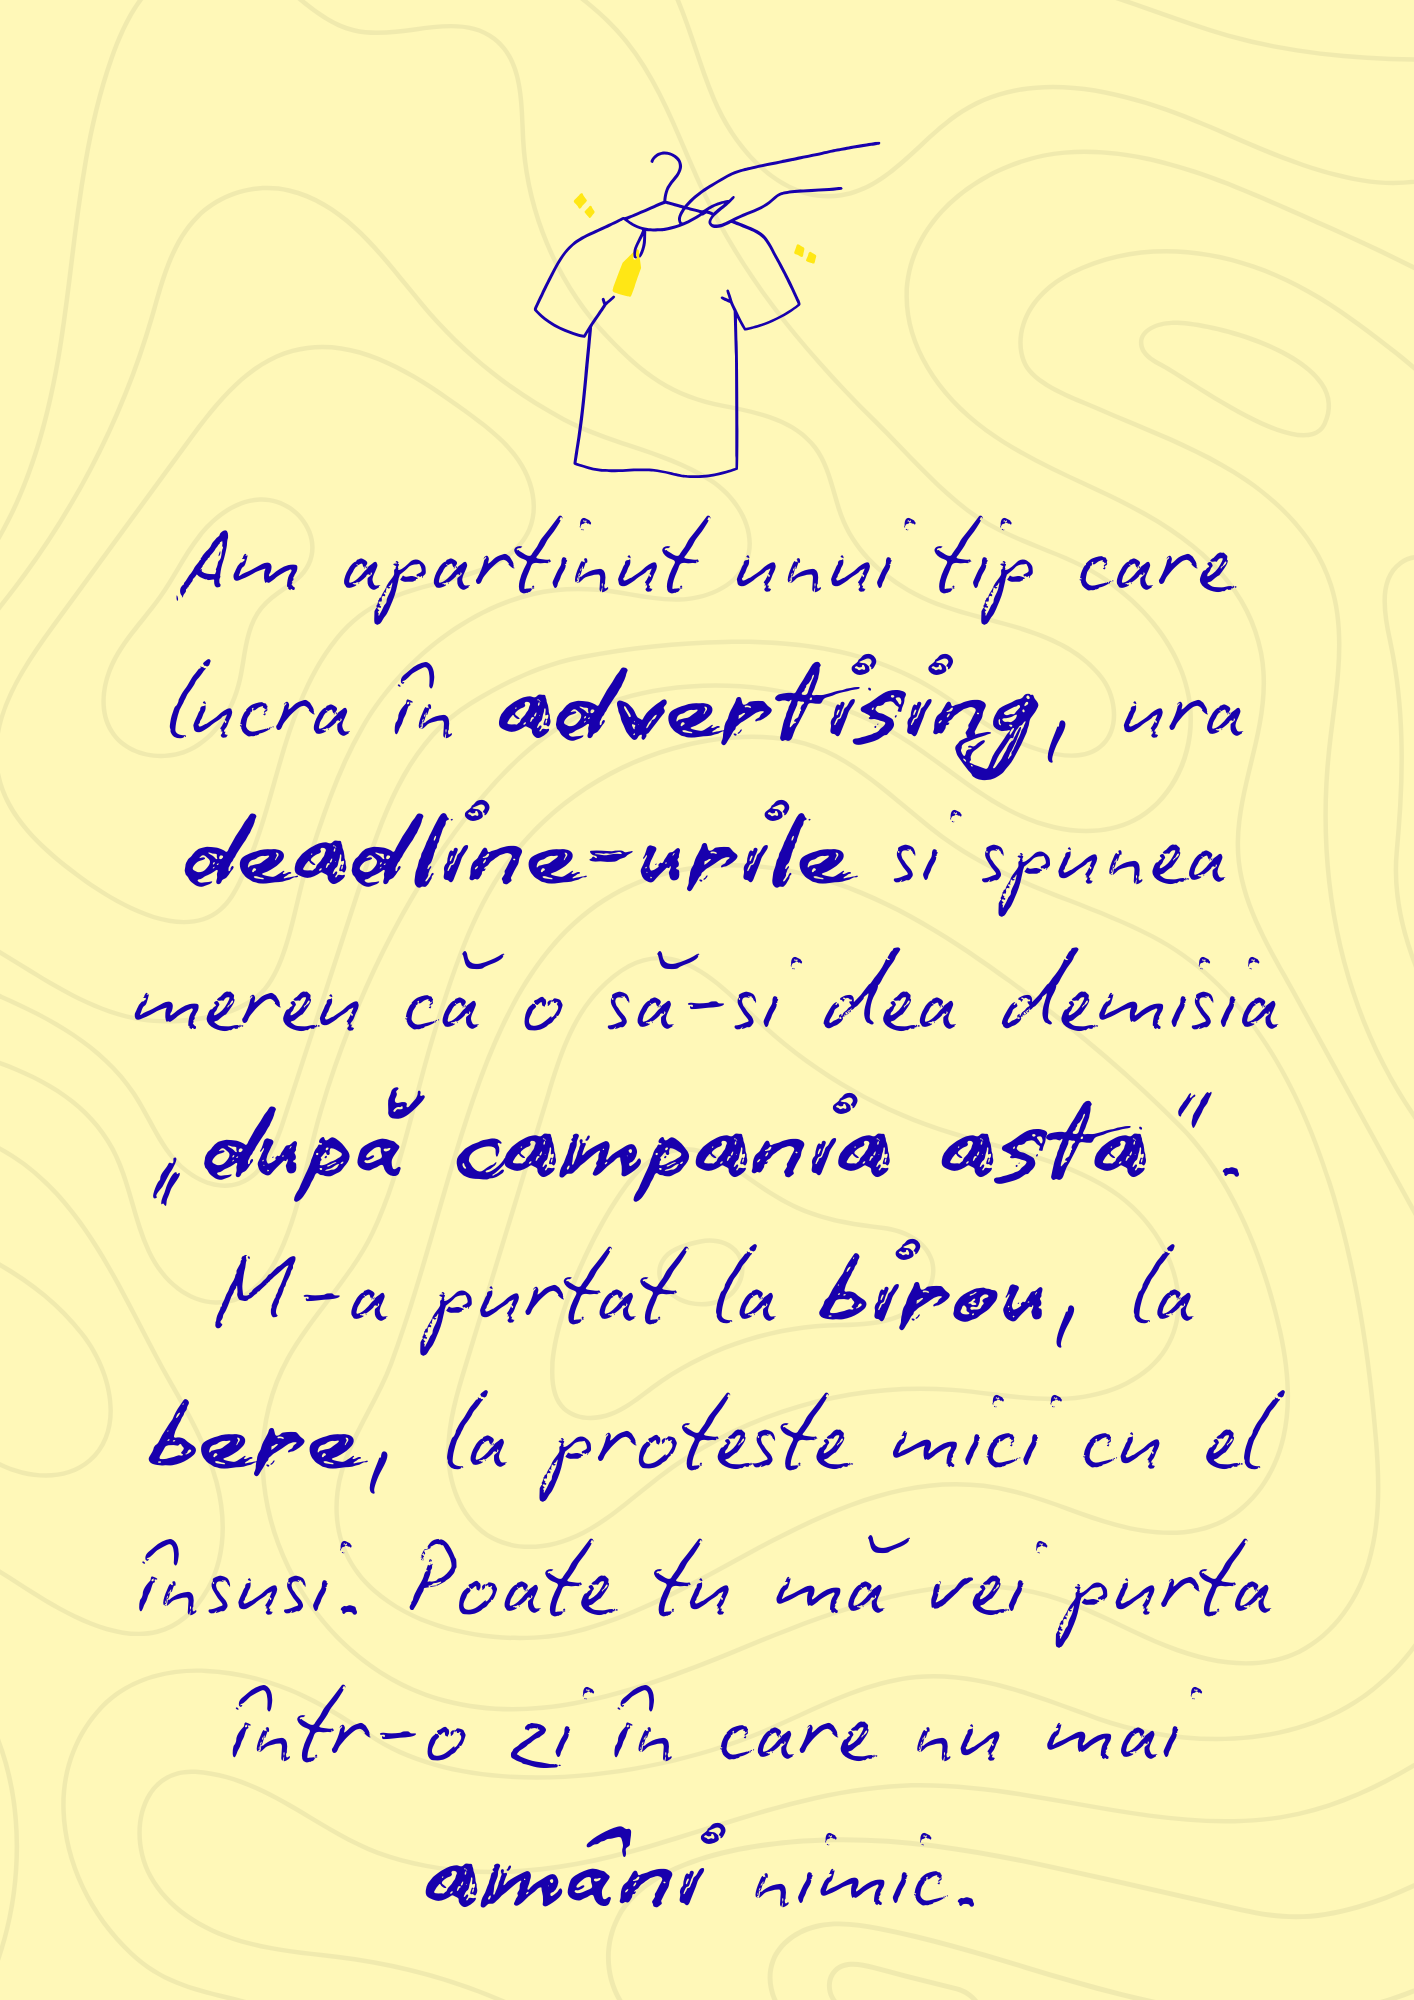 Am apartinut unui tip care
lucra în advertising, ura
deadline-urile si spunea
mereu că o să-si dea demisia
„după campania asta".
M-a purtat la birou, la
bere, la proteste mici cu el
însusi. Poate tu mă vei purta
într-o zi în care nu mai
amâni nimic.